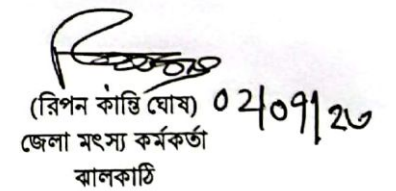 (রিপন কান্তি ঘোষ) ০২/০৭/২৩
জেলা মৎস্য কর্মকর্তা
ঝালকাঠি